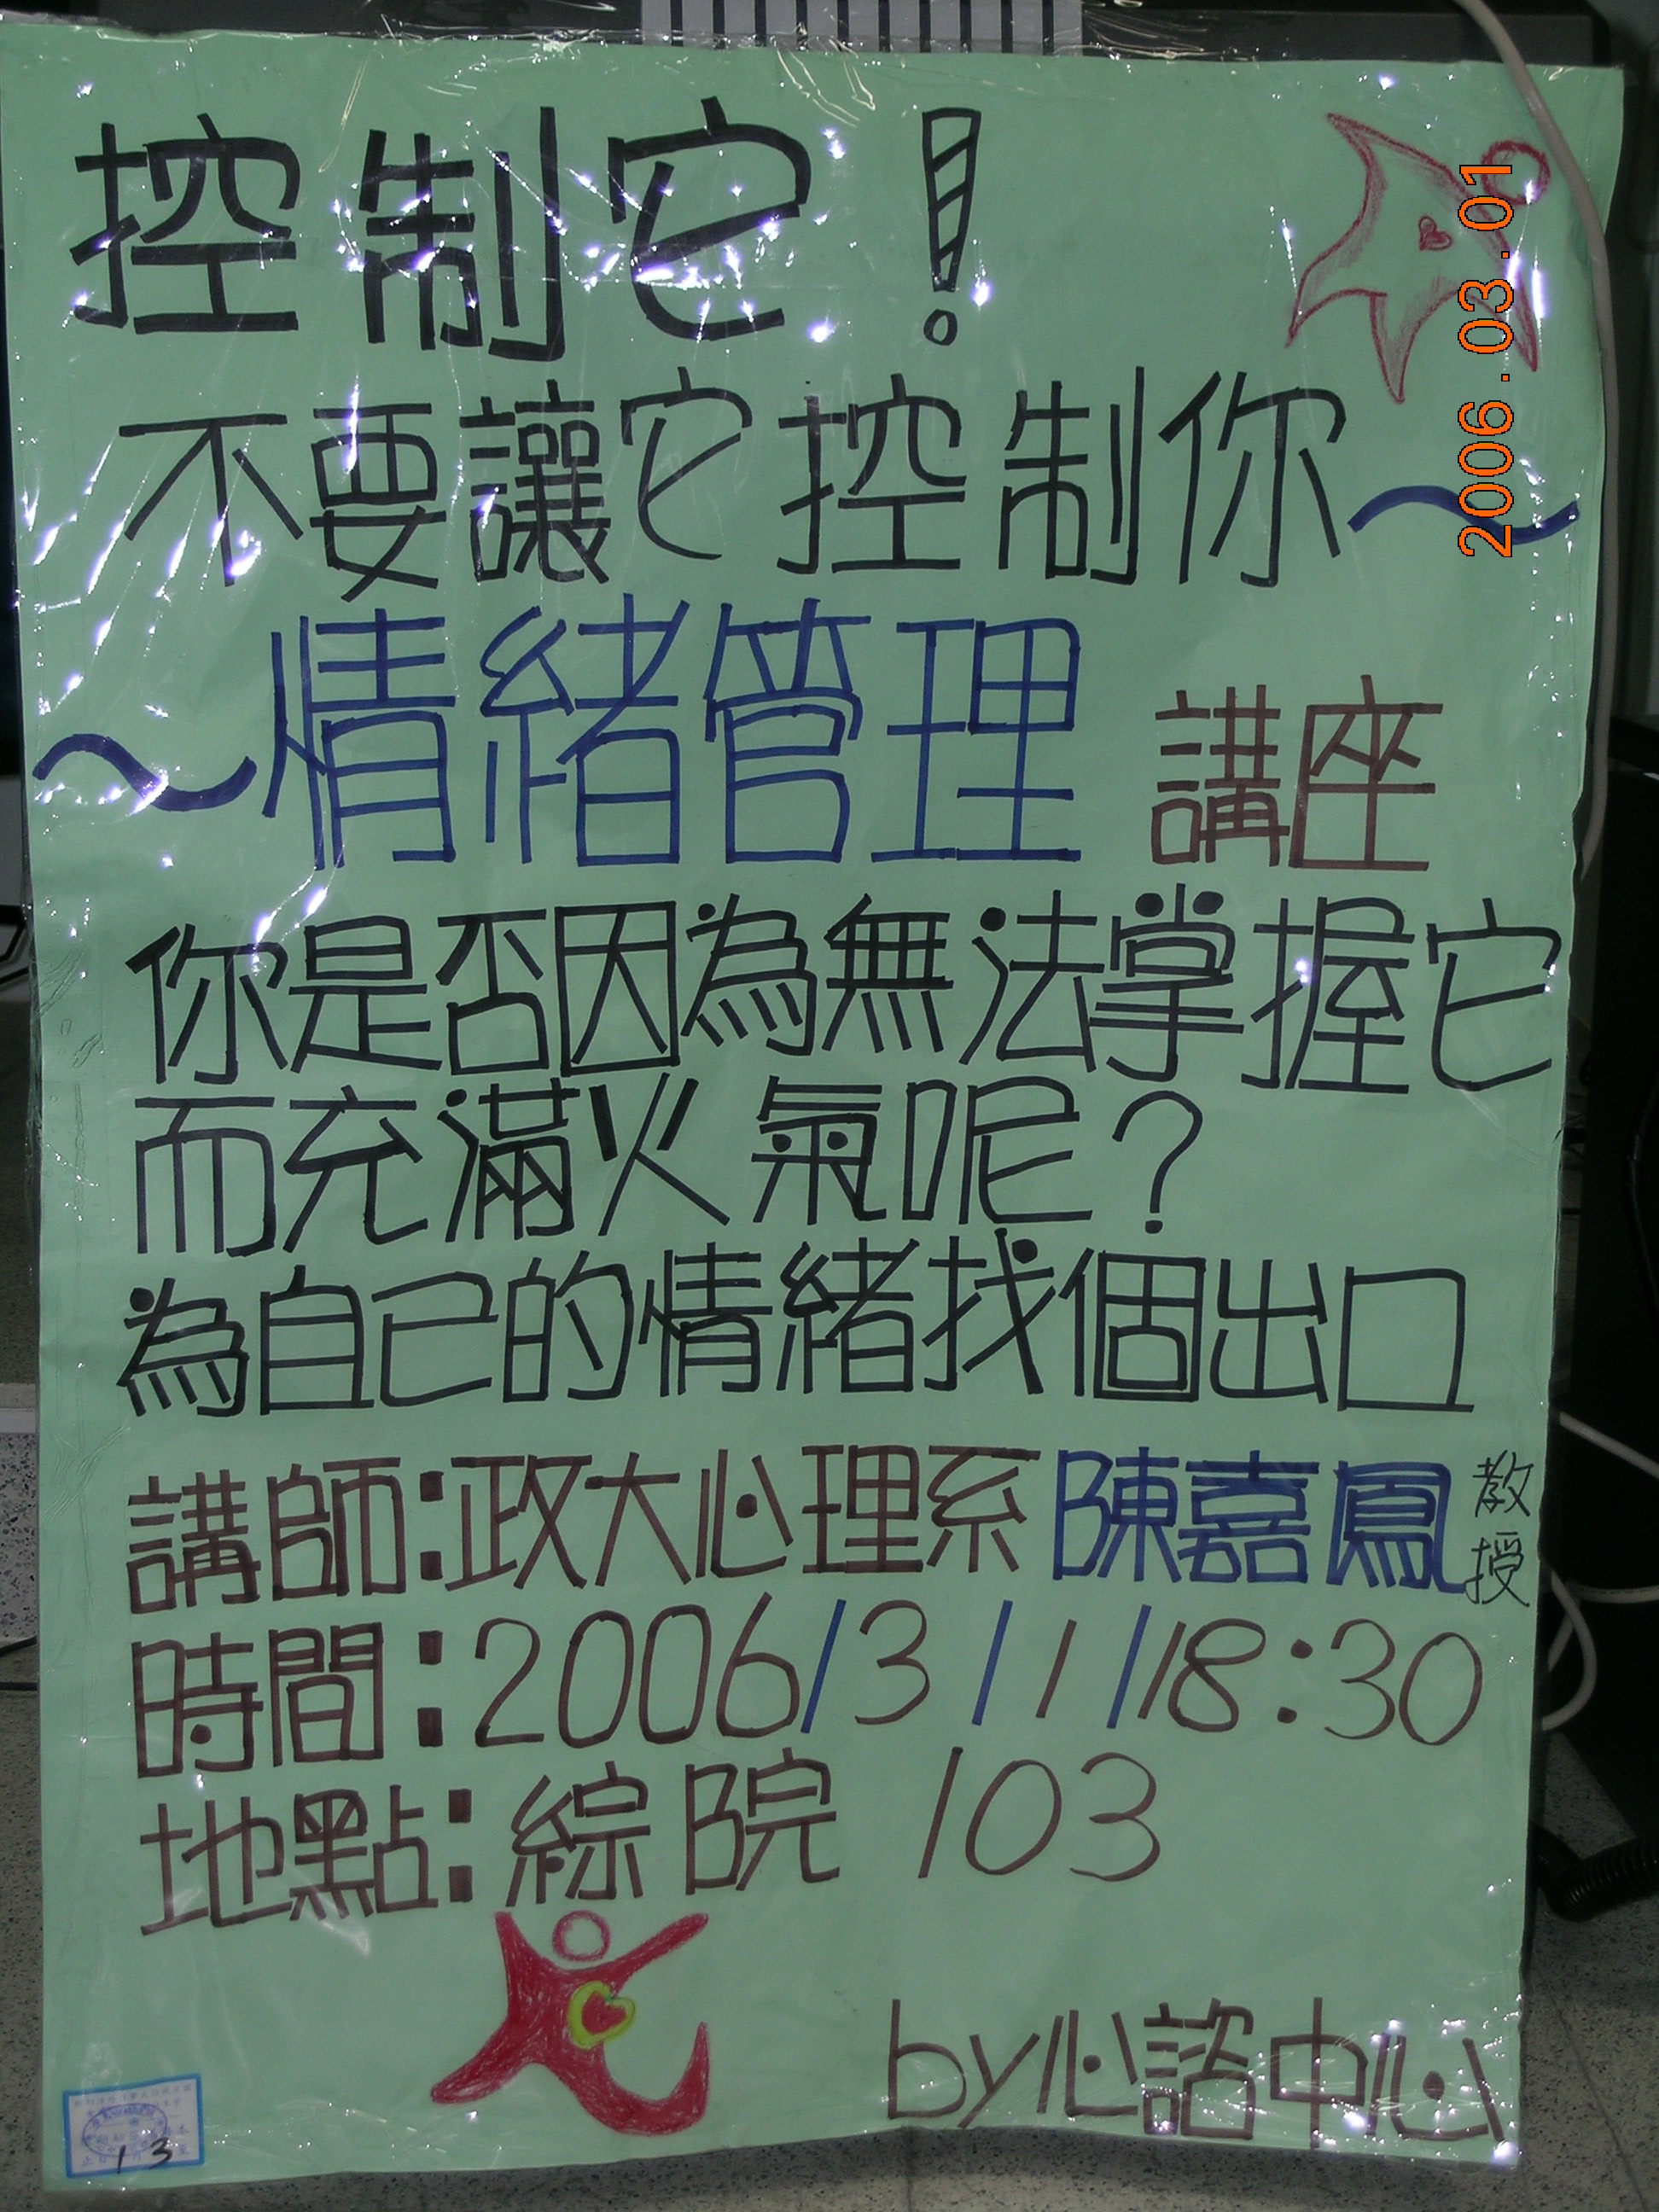 控制它!
不要讓它控制你～
～情緒管理 講座
你是否因為無法掌握它
而充滿火氣呢?
為自己的情緒找個出口
講師:政大心理系 陳嘉鳳 教授
時間:2006/3/1/18:30
地點:綜院 103
by心諮中心
13
2006.03.01